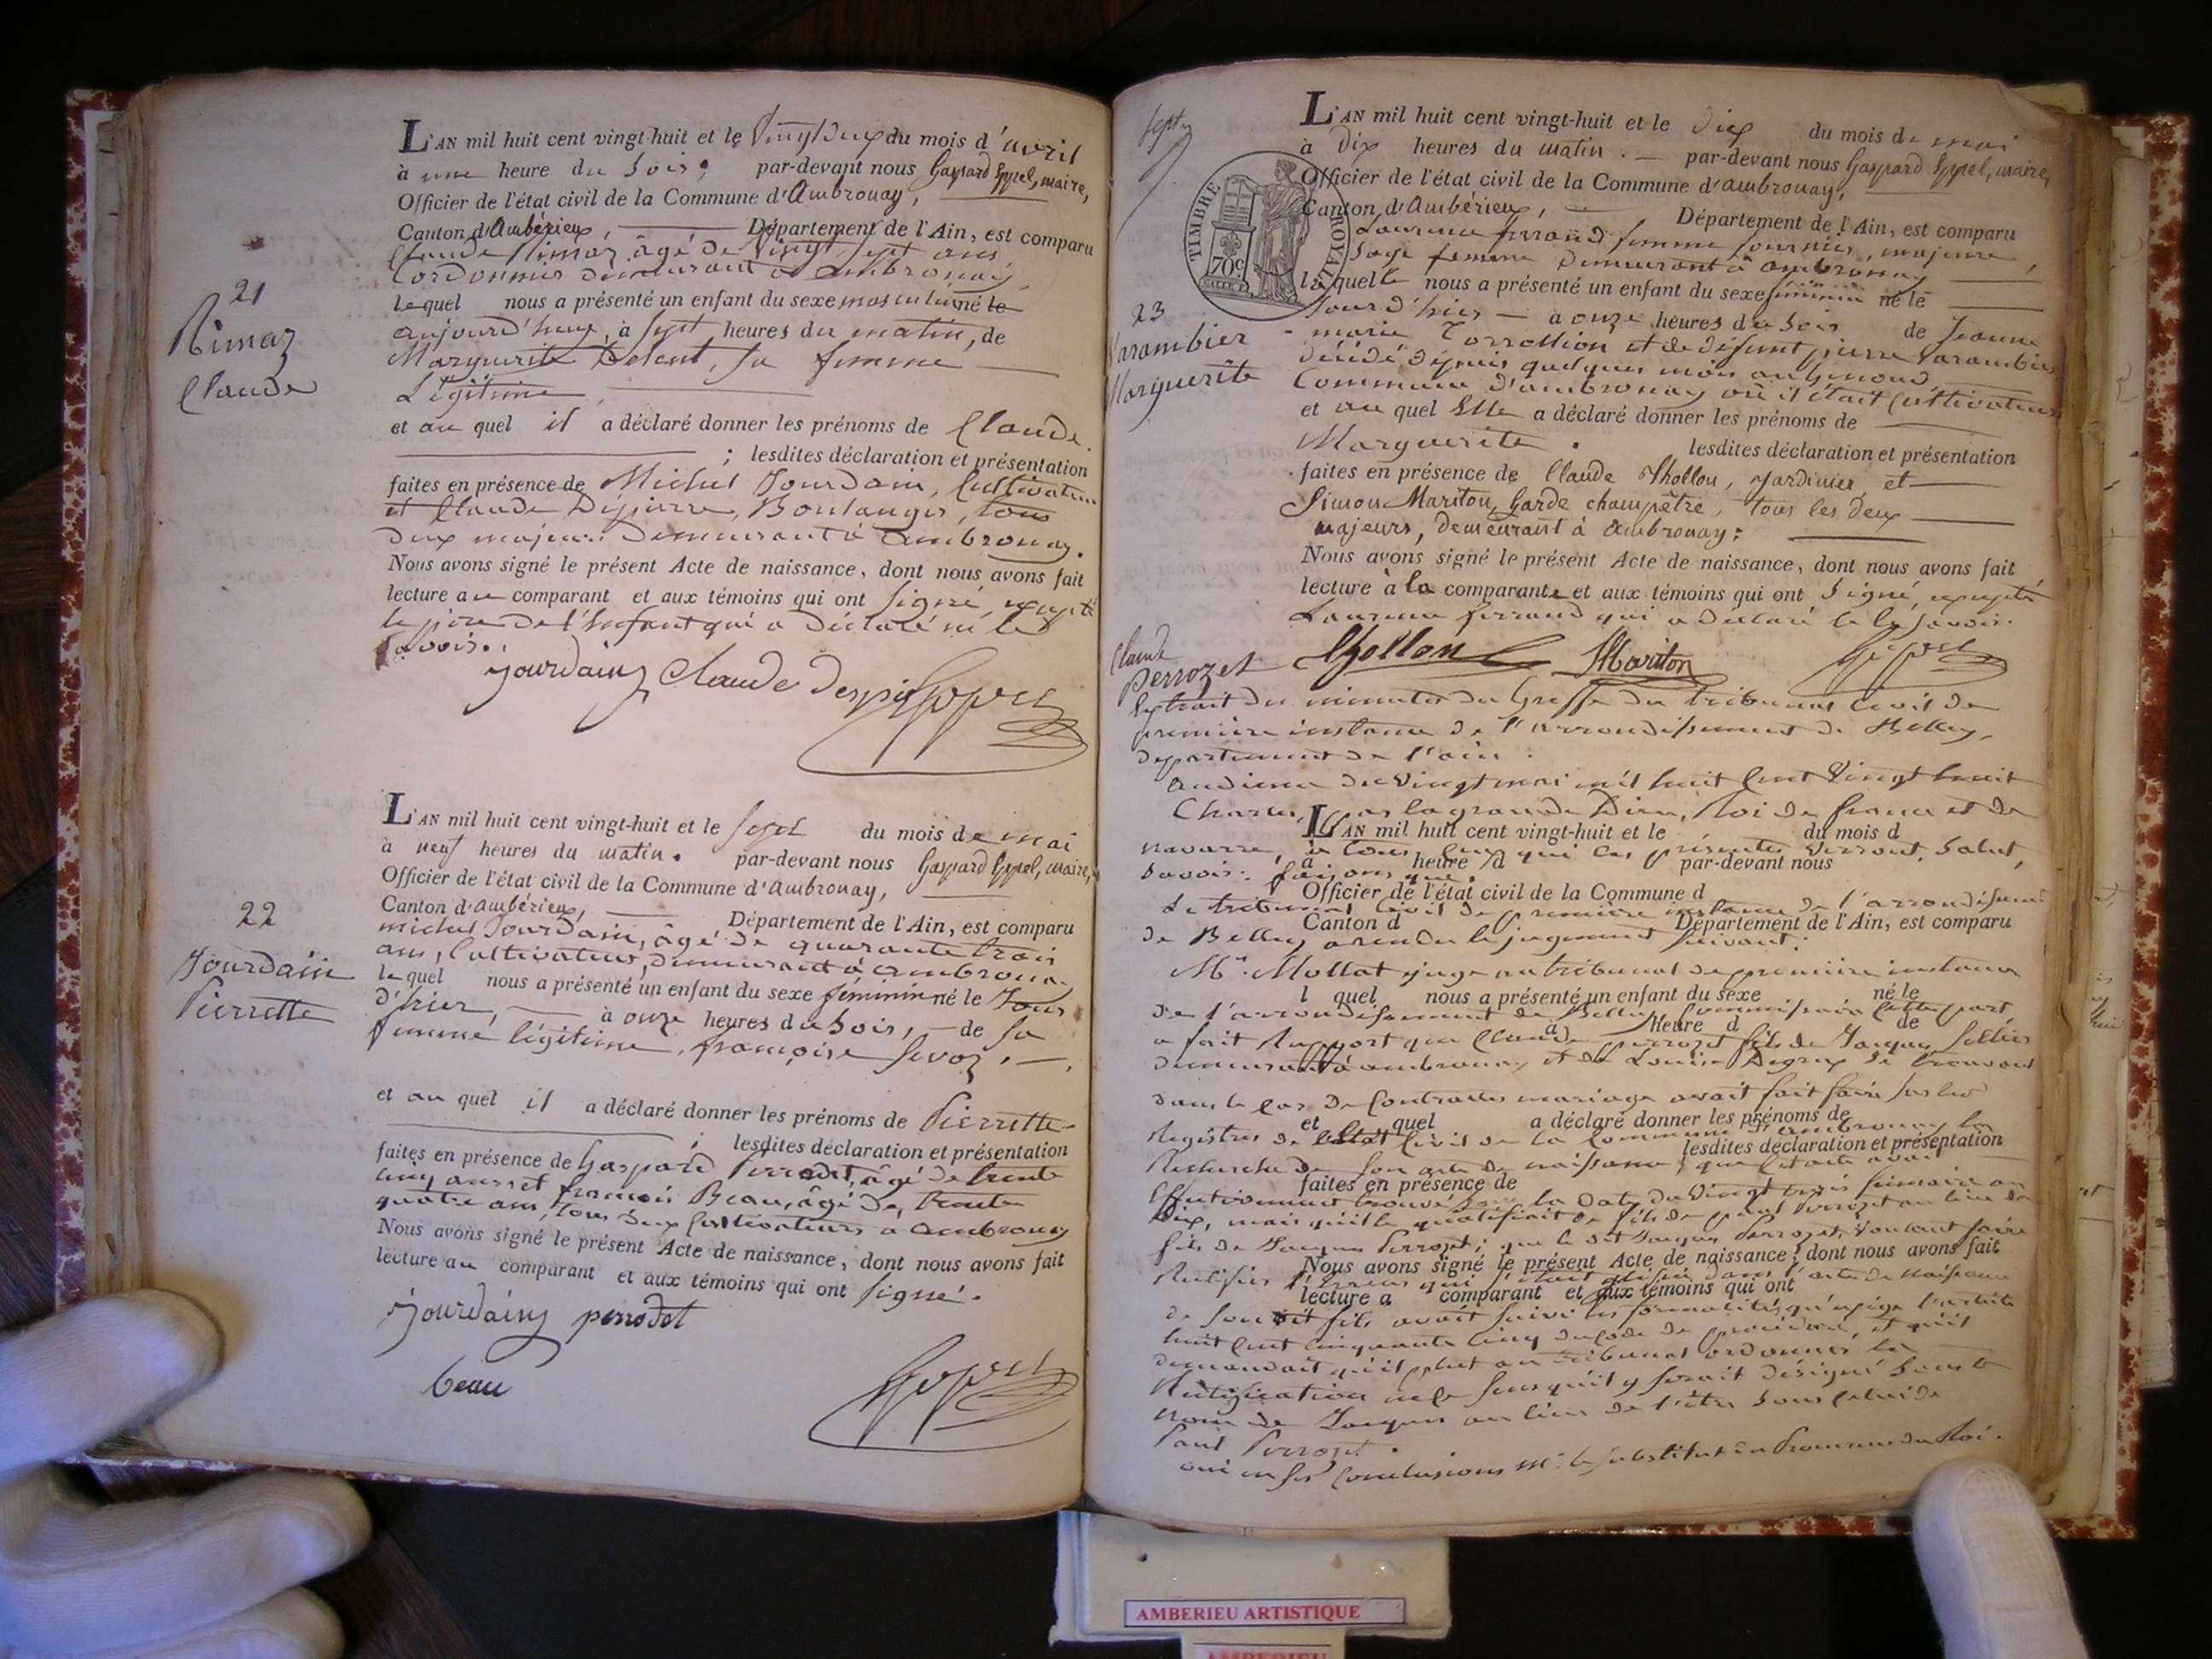 L'AN mil huit cent vingt-huit et le Vingt Deux du mois d'avril
à une heure du Soir, par-devant nous Gaspard Gppel, maire,
Officier de l'état civil de la Commune d'Ambronay,
Canton d'Ambérieu, Département de l'Ain, est comparu
Claude Rimaz âgé de Vingt Sept ans
Cordonnier demeurant à ambronay
lequel nous a présenté un enfant du sexe masculin né le
aujourd'huy, à Sept heures du matin, de
Marguerite sa femme
Légitime
et au quel il a déclaré donner les prénoms de Claude.
; lesdites déclaration et présentation
faites en présence de Michel Jourdain, Cultivateur
et Claude Dépierre, Boulanger, tous
deux majeurs demeurant à Ambronay.
Nous avons signé le présent Acte de naissance, dont nous avons fait
lecture au comparant et aux témoins qui ont Signé, excepté
le père de l'Enfant qui a déclaré ne le
Savoir.
Jourdain Claude
21
Rimaz
Claude
L'AN mil huit cent vingt-huit et le Sept du mois de mai
à neuf heures du matin. par-devant nous Gaspard Gppel, maire,
Officier de l'état civil de la Commune d'Ambronay,
Canton d'ambérieu, Département de l'Ain, est comparu
michel Jourdain, âgé de quarante trois
ans, Cultivateur, demeurant à ambronay
lequel nous a présenté un enfant du sexe féminin né le Jour
d'hier, à onze heures du Soir, de Sa
femme légitime, françoise Sevoz.
et au quel il a déclaré donner les prénoms de Pierrette
; lesdites déclaration et présentation
faites en présence de Gaspard Perrodet, âgé de trente
cinq ans et françois Beau, âgé de trente
quatre ans, tous deux Cultivateurs a Ambronay
Nous avons signé le présent Acte de naissance, dont nous avons fait
lecture au comparant et aux témoins qui ont Signé.
Jourdain perrodet
beau
22
Jourdain
Pierrette
L'AN mil huit cent vingt-huit et le Dix du mois de mai
à Dix heures du matin. par-devant nous Gaspard Gppel, maire,
Officier de l'état civil de la Commune d'ambronay,
Canton d'Ambérieu, Département de l'Ain, est comparu
Laurence ferrand femme fournier, majeure,
Sage femme demeurant à ambronay
laquelle nous a présenté un enfant du sexe féminin né le
Jour d'hier à onze heures du Soir de Jeanne
marie et de défunt pierre Varambier
décédé depuis quelques mois
Commune d'ambronay où il était Cultivateur
et au quel Elle a déclaré donner les prénoms de
Marguerite. lesdites déclaration et présentation
faites en présence de Claude Thollon, Jardinier, et
Simon Mariton, Garde champêtre, tous les deux
majeurs, demeurant à Ambronay;
Nous avons signé le présent Acte de naissance, dont nous avons fait
lecture à la comparante et aux témoins qui ont Signé, excepté
Laurence ferrand qui a déclaré ne le Savoir.
Thollon Mariton
TIMBRE ROYAL
70c
23
Varambier
Marguerite
Claude
Perrozet
Extrait des minutes du Greffe du tribunal Civil de
première instance de l'arrondissement de Belley,
département de l'ain.
audience du vingt mai mil huit Cent Vingt huit
Charles, par la grace de Dieu, Roi de france et de
L'AN mil huit cent vingt-huit et le du mois d
navarre, à tous Ceux qui Ces présentes verront, Salut,
à heure d par-devant nous
Savoir faisons que,
Officier de l'état civil de la Commune d
Le tribunal Civil de première instance de l'arrondissement
Canton d Département de l'Ain, est comparu
de Belley a rendu le jugement Suivant:
Mr. Mollat juge au tribunal de première instance
l quel nous a présenté un enfant du sexe né le
de l'arrondissement de Belley, Commissaire en Cette part,
à heure d de
a fait Rapport que Claude perrozet fils de Jacques Sellier
demeurant à ambronay et de Louise Degrux Se trouvant
dans le Cas de Contracter mariage avait fait faire Sur les
et quel a déclaré donner les prénoms de
Registres de l'Etat Civil de la Commune d'ambronay la
lesdites déclaration et présentation
Recherche de Son acte de naissance, que Cet acte avait
faites en présence de
Effectivement trouvé Sous la Date du Vingt trois frimaire an
Dix, mais qu'il le qualifiait de fils de paul Perrozet au lieu de
fils de Jacques Perrozet; que le dit Jacques Perrozet, Voulant faire
Nous avons signé le présent Acte de naissance, dont nous avons fait
Rectifier l'Erreur qui s'était glissée dans l'acte de naissance
lecture a comparant et aux témoins qui ont
de Son dit fils avait Suivi les formalités qu'exige l'article
huit Cent Cinquante Cinq du Code de procédure, et qu'il
demandait qu'il plut au tribunal ordonner la
Rectification en Ce Sens qu'il y Serait désigné Sous le
nom de Jacques au lieu de l'être Sous Celui de
Paul Perrozet.
oui en Ses Conclusions Mr. le Substitut du Procureur du Roi.
AMBERIEU ARTISTIQUE
AMBERIEU